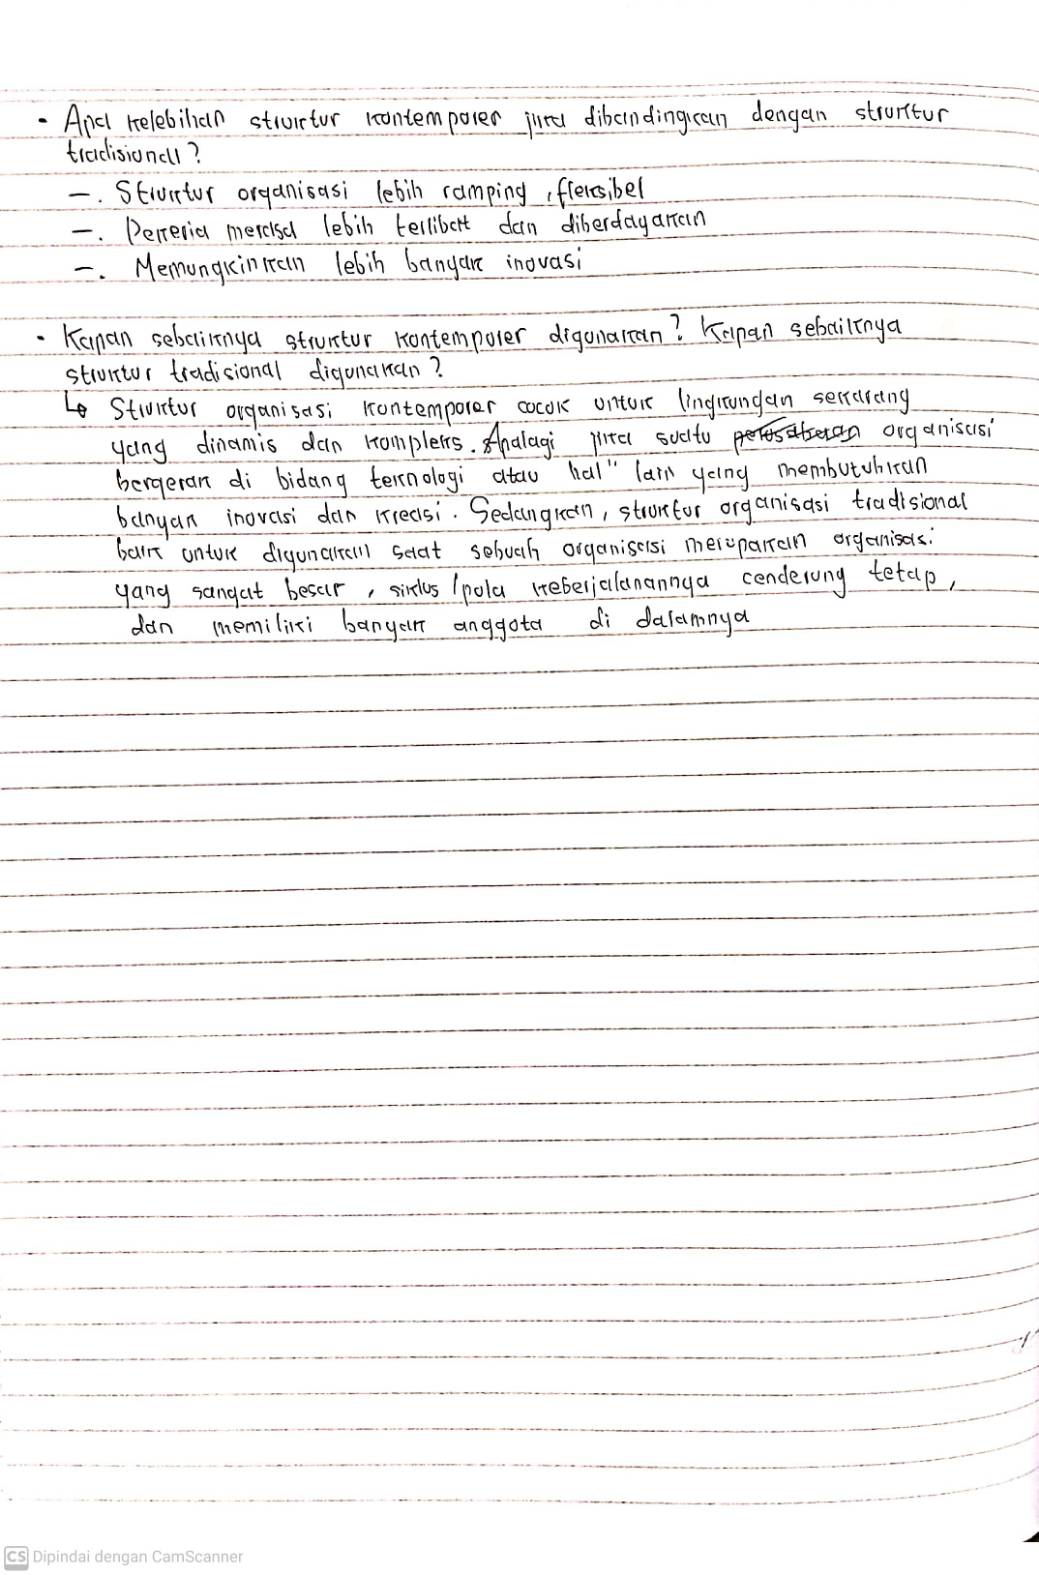 • Apa kelebihan struktur kontemporer jika dibandingkan dengan struktur
tradisional?
–. Struktur organisasi lebih ramping, fleksibel
–. Pekerja merasa lebih terlibat dan diberdayakan
–. Memungkinkan lebih banyak inovasi
• Kapan sebaiknya struktur kontemporer digunakan? Kapan sebaiknya
struktur tradisional digunakan?
↳ Struktur organisasi kontemporer cocok untuk lingkungan sekarang
yang dinamis dan kompleks. Apalagi jika suatu organisasi
bergerak di bidang teknologi atau hal" lain yang membutuhkan
banyak inovasi dan kreasi. Sedangkan, struktur organisasi tradisional
baik untuk digunakan saat sebuah organisasi merupakan organisasi
yang sangat besar, siklus/pola keberjalanannya cenderung tetap,
dan memiliki banyak anggota di dalamnya
CS Dipindai dengan CamScanner